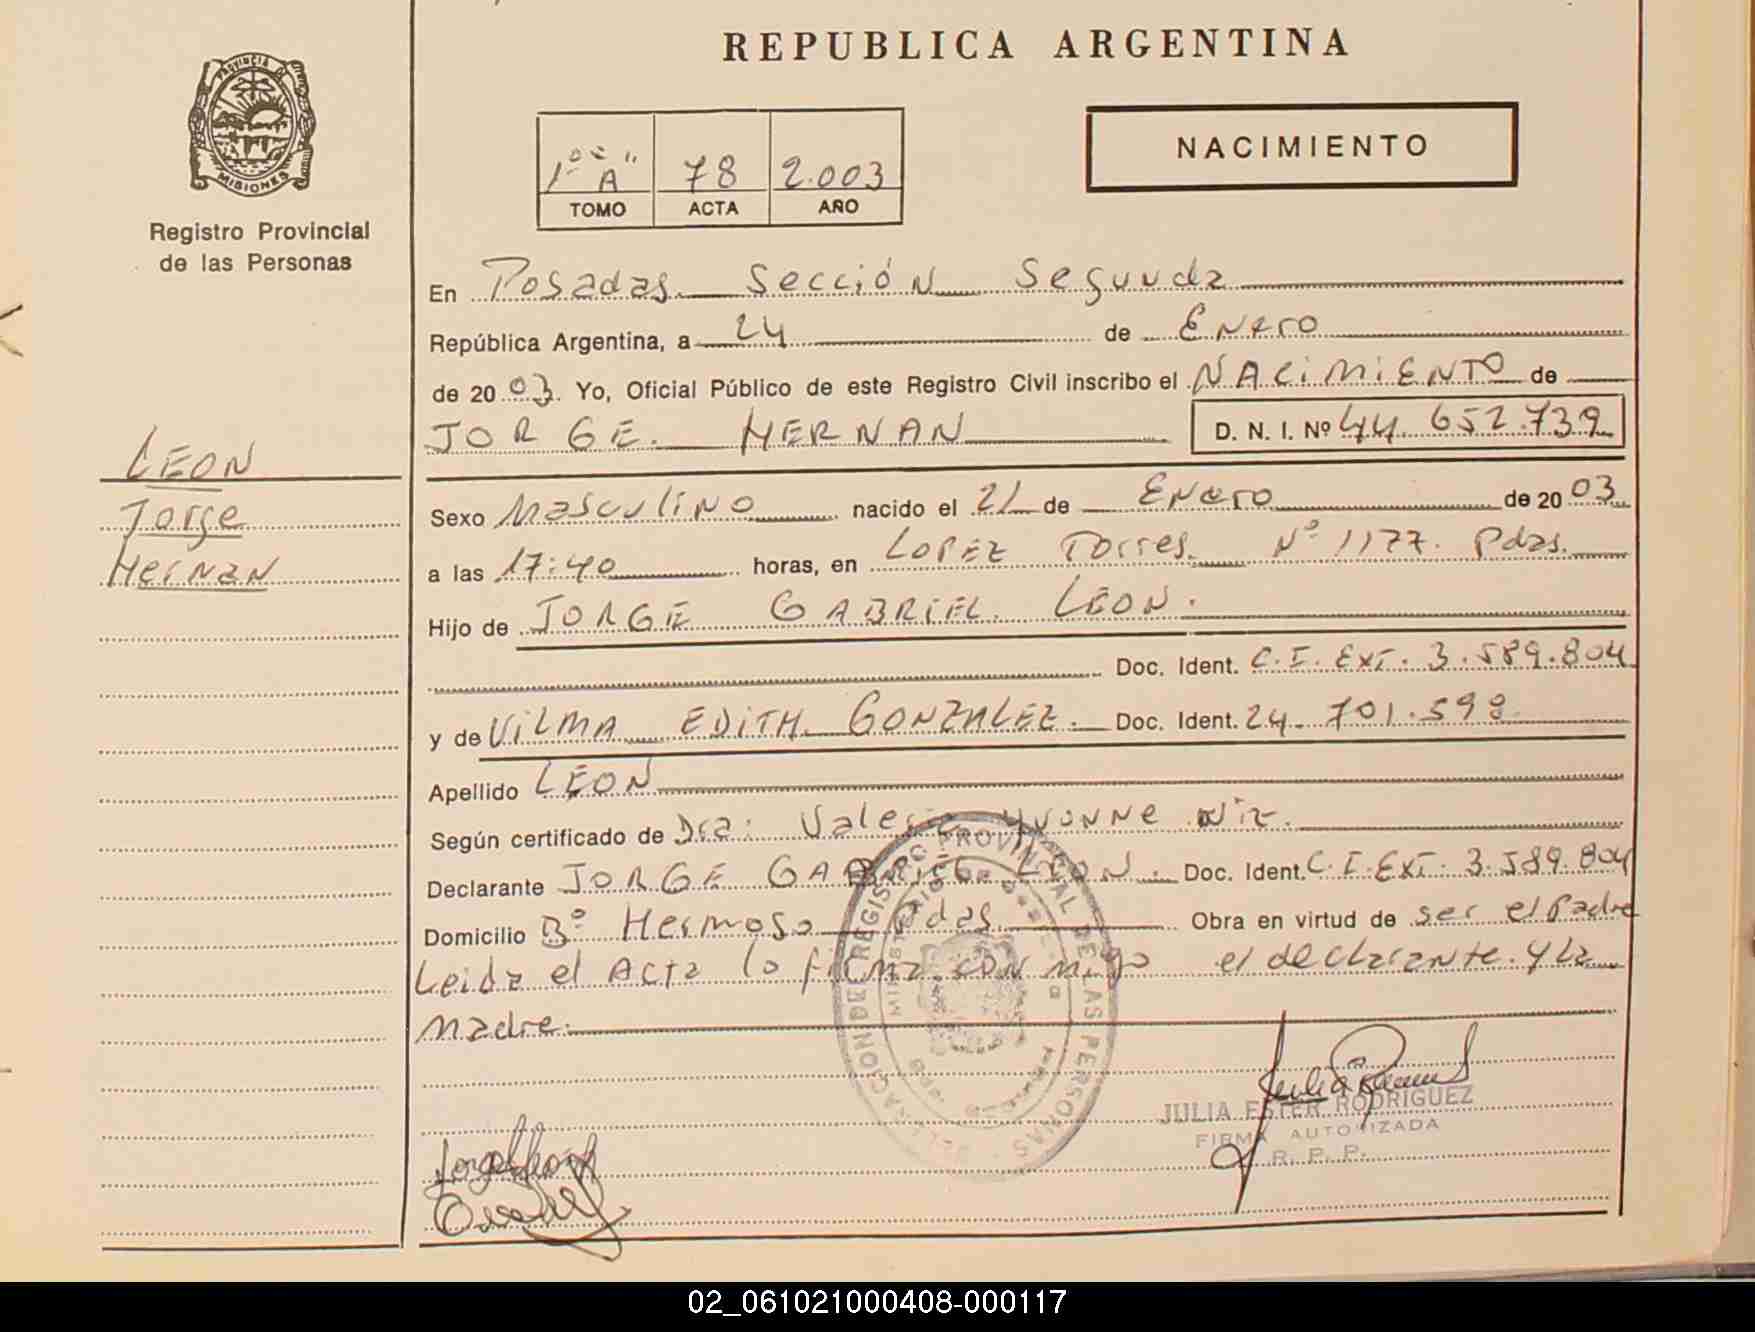 REPUBLICA ARGENTINA
PROVINCIA DE
MISIONES
Registro Provincial
de las Personas
1º "A" 78 2.003
TOMO ACTA AÑO
NACIMIENTO
En Posadas. Sección Segunda
República Argentina, a 24 de Enero
de 2003. Yo, Oficial Público de este Registro Civil inscribo el NACIMIENTO de
JORGE HERNAN D. N. I. Nº 44.652.739
LEON
Jorge
Hernan
Sexo Masculino nacido el 21 de Enero de 2003
a las 17:40 horas, en LOPEZ Torres. Nº 1177. Pdas.
Hijo de JORGE GABRIEL LEON.
Doc. Ident. C.I. Ext. 3.589.804
y de VILMA EDITH GONZALEZ. Doc. Ident. 24.701.598
Apellido LEON
Según certificado de Dra. Valeria Yvonne
Declarante JORGE GABRIEL LEON. Doc. Ident. C.I. Ext. 3.589.804
Domicilio Bº Hermoso Pdas. Obra en virtud de ser el Padre
Leida el Acta lo firma con migo el declarante. y la
madre.
REGISTRO PROVINCIAL DE LAS PERSONAS
JULIA ESTER RODRIGUEZ
FIRMA AUTORIZADA
R. P. P.
02_061021000408-000117